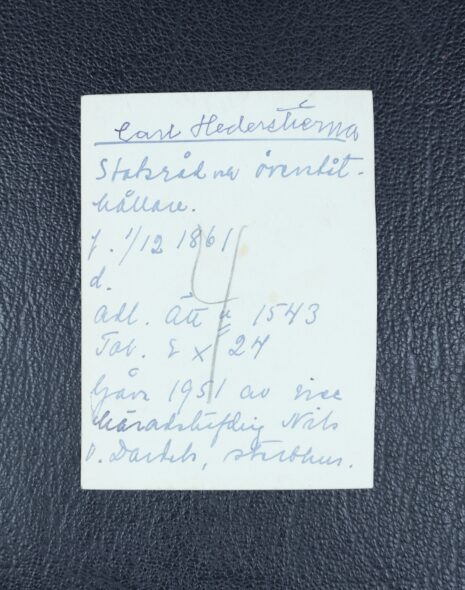 Carl Hederstierna
Statsråd överståt-
hållare.
f. 1/12 1861
d.
Adl. Ätt № 1543
Tab. 24
Gåva 1951 av vice
häradshöfding Nils
v. Dardels, sterbhus.
4